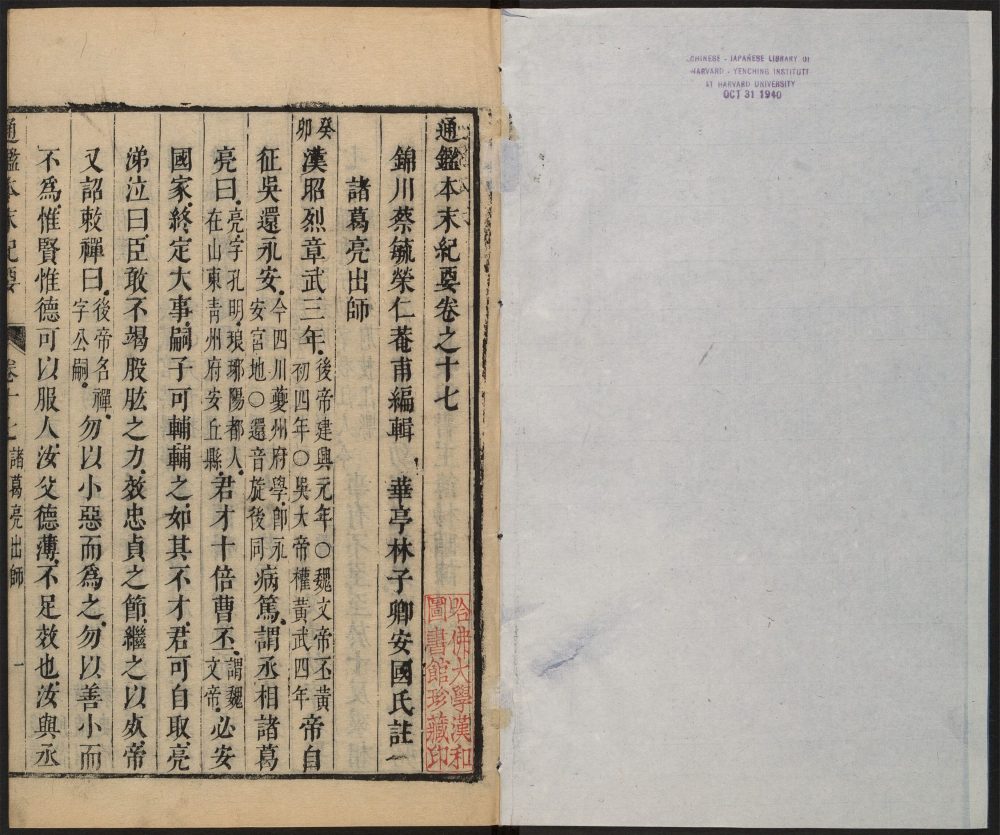 CHINESE - JAPANESE LIBRARY OF
HARVARD - YENCHING INSTITUTE
AT HARVARD UNIVERSITY
OCT 31 1940
通鑑本末紀要卷之十七
錦川蔡毓榮仁菴甫編輯 華亭林子卿安國氏註
諸葛亮出師
癸卯漢昭烈章武三年後帝建興元年○魏文帝丕黃初四年○吳大帝權黃武四年帝自
征吳還永安今四川夔州府學卽永安宮地○還音旋後同病篤謂丞相諸葛
亮曰亮字孔明瑯琊陽都人在山東青州府安丘縣君才十倍曹丕謂魏文帝必安
國家終定大事嗣子可輔輔之如其不才君可自取亮
涕泣曰臣敢不竭股肱之力效忠貞之節繼之以死帝
又詔敕禪曰後帝名禪字公嗣勿以小惡而爲之勿以善小而
不爲惟賢惟德可以服人汝父德薄不足效也汝與丞
通鑑本末紀要 卷十七 諸葛亮出師 一
哈佛大學漢和
圖書館珍藏印